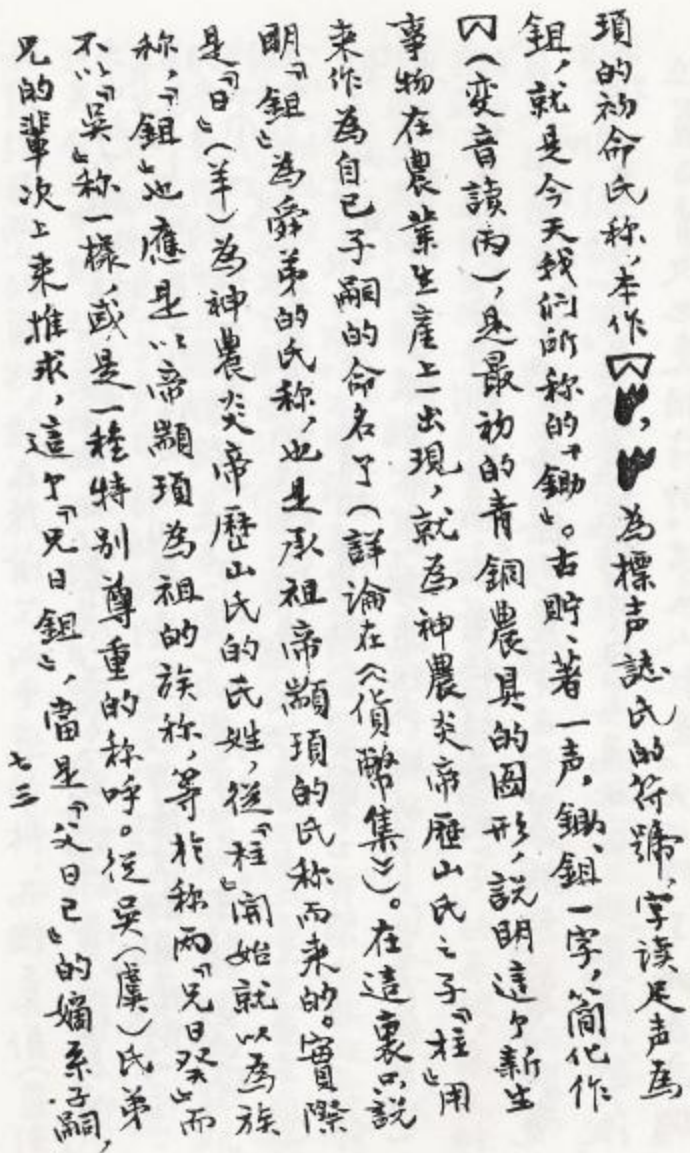 頊的初命氏称,本作,為標声誌氏的符號,字读足声為
鉏,就是今天我们所称的「鋤」。古貯、著一声,鋤、鉏一字,簡化作
(变音讀丙),是最初的青銅農具的圖形,説明這个新生
事物在農業生産上一出現,就為神農炎帝歷山氏之子「柱」用
来作為自己子嗣的命名了(詳論在《貨幣集》)。在這裏只説
明「鉏」為舜弟的氏称,也是承祖帝顓頊的氏称而来的。實際
是「日」(羊)為神農炎帝歷山氏的氏姓,從「柱」開始就以為族
称,「鉏」也應是以帝顓頊為祖的族称,等於称丙「兄日癸」而
不以「吳」称一樣,或是一種特别尊重的称呼。從吳(虞)氏弟
兄的輩次上来推求,這个「兄日鉏」,當是「父日己」的嫡系子嗣,
七三